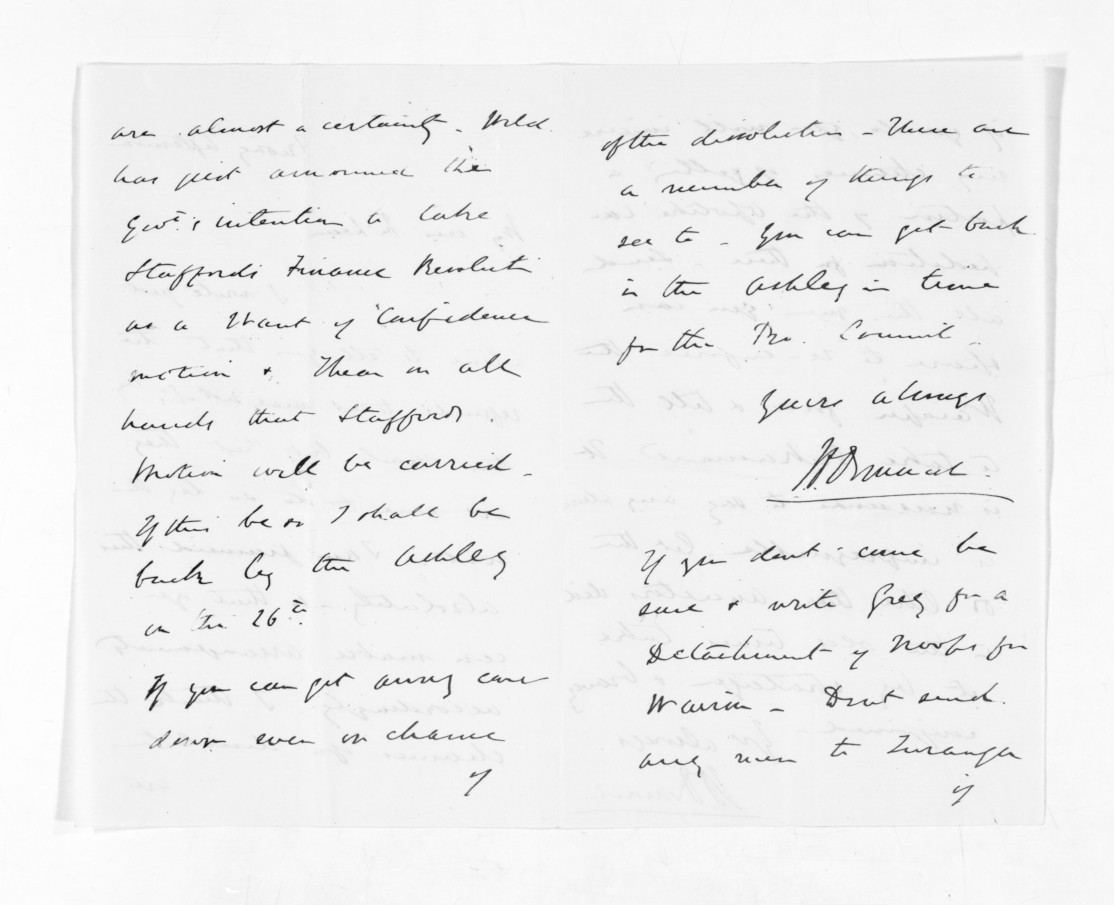 are almost a certainty - Weld
has just announced the
Govt's intention to take
Stafford's Finance Resolution
as a Want of Confidence
motion & I hear on all
hands that Stafford's
Motion will be carried -
If this be so I shall be
back by the Ashley
on the 26th
If you can get away come
down even on chance
of
of the dissolution - There are
a number of things to
see to - You can get back
in the Ashley in time
for the Pro. Council -
Yours always
If you dont come be
sure & write Grey for a
Detachment of troops for
Wairoa - Dont send
any men to Turanga
if